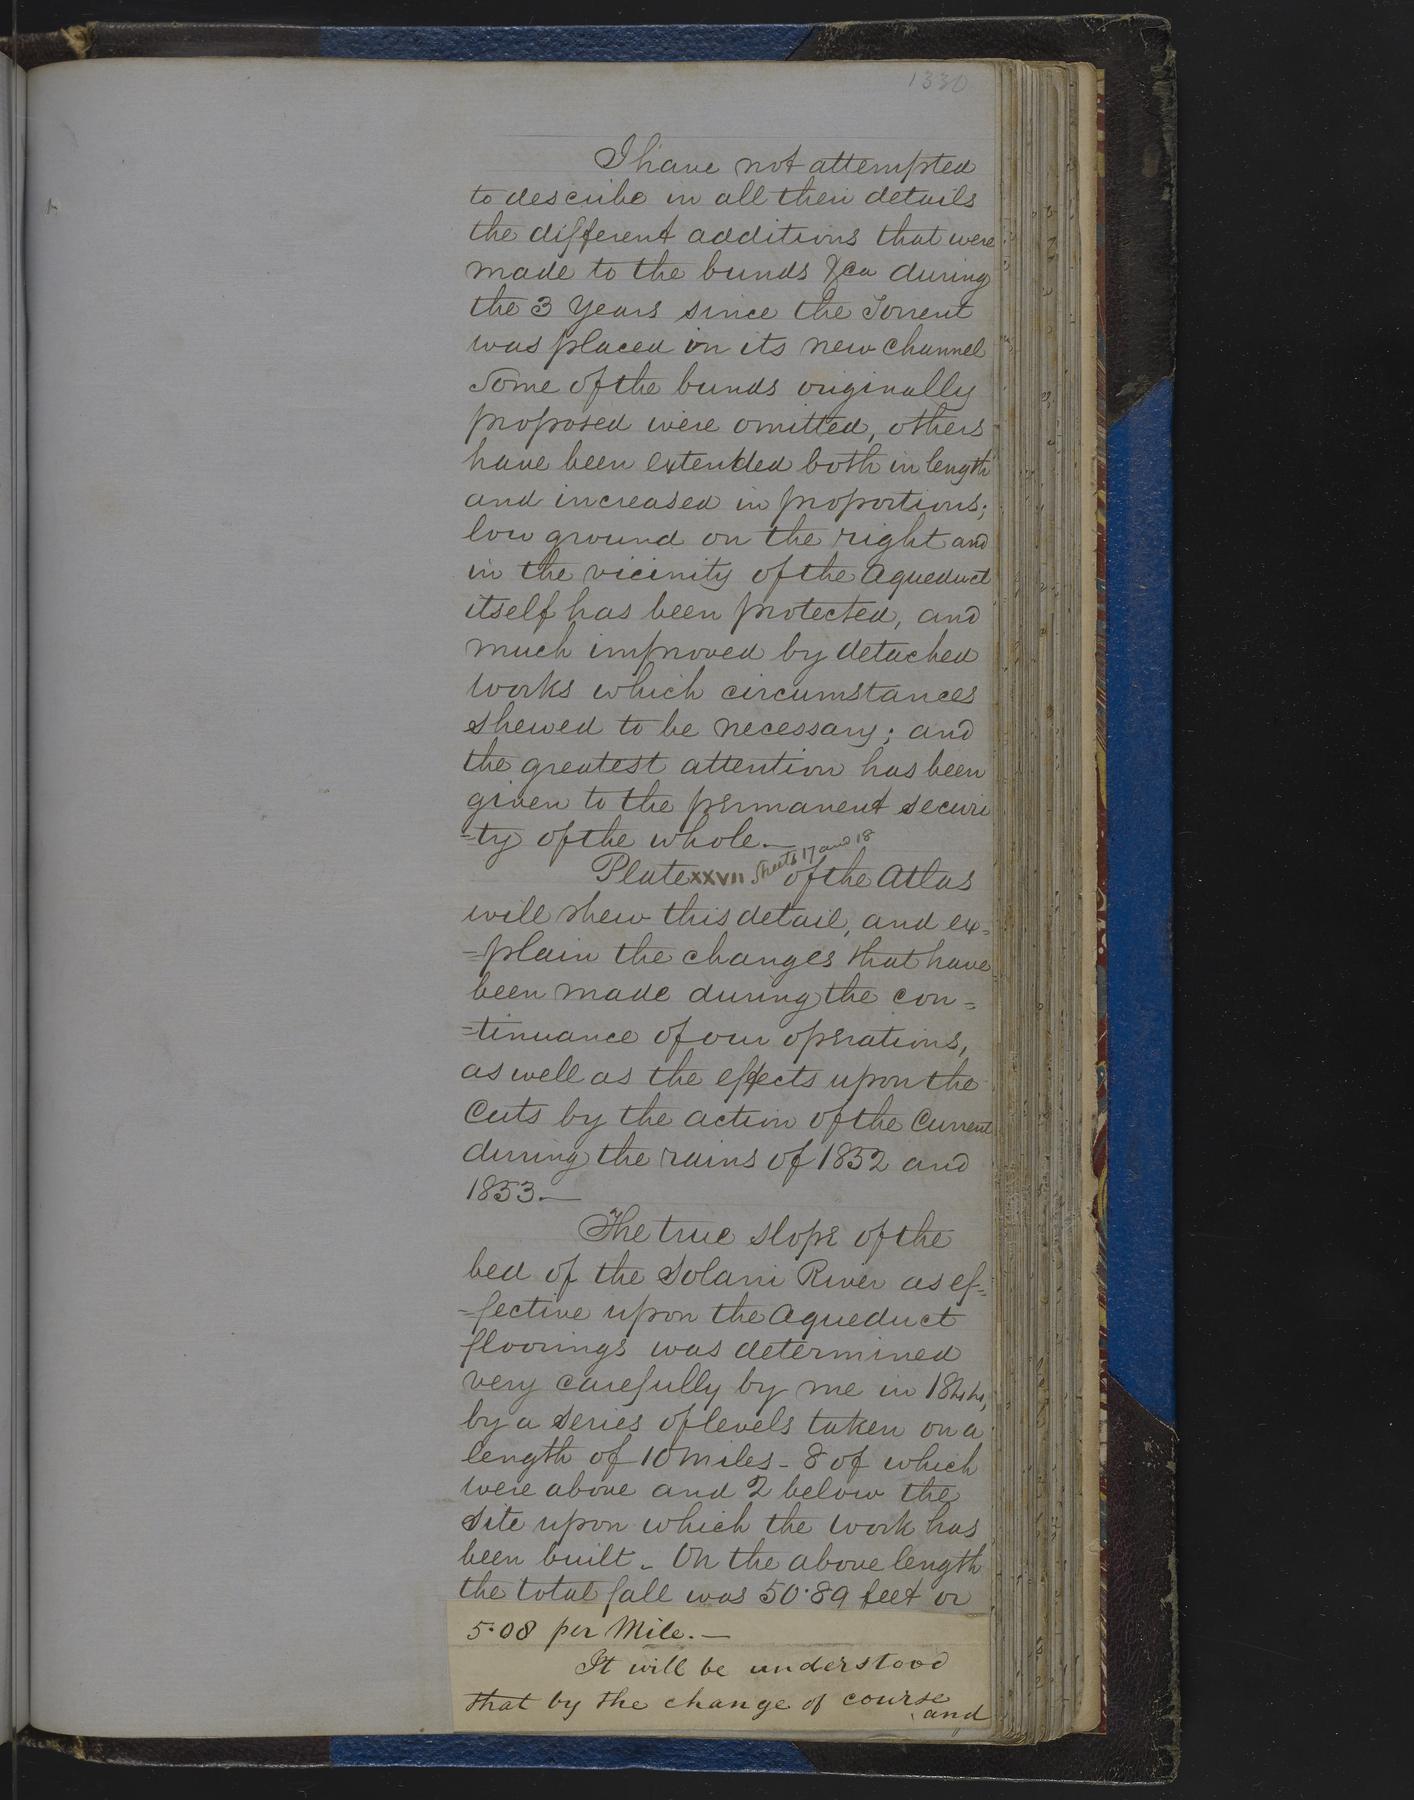 1330
I have not attempted
to describe in all their details
the different additions that were
made to the bunds &ca during
the 3 Years since the Torrent
was placed in its new Channel
Some of the bunds originally
proposed were omitted, others
have been extended both in length
and increased in proportions;
low ground on the right and
in the vicinity of the Aqueduct
itself has been protected, and
much improved by detached
works which circumstances
shewed to be necessary; and
the greatest attention has been
given to the permanent securi
=ty of the whole.—
Plate XXVII Sheets 17 and 18 of the Atlas
will shew this detail, and ex=
=plain the changes that have
been made during the con=
=tinuance of our operations,
as well as the effects upon the
Cuts by the action of the Current
during the rains of 1852 and
1853.—
The true slope of the
bed of the Solani River as ef=
=fective upon the Aqueduct
floorings was determined
very carefully by me in 1844,
by a series of levels taken on a
length of 10 miles - 8 of which
were above and 2 below the
site upon which the work has
been built - On the above length
the total fall was 50·89 feet or
5·08 per Mile.—
It will be understood
that by the change of course
and